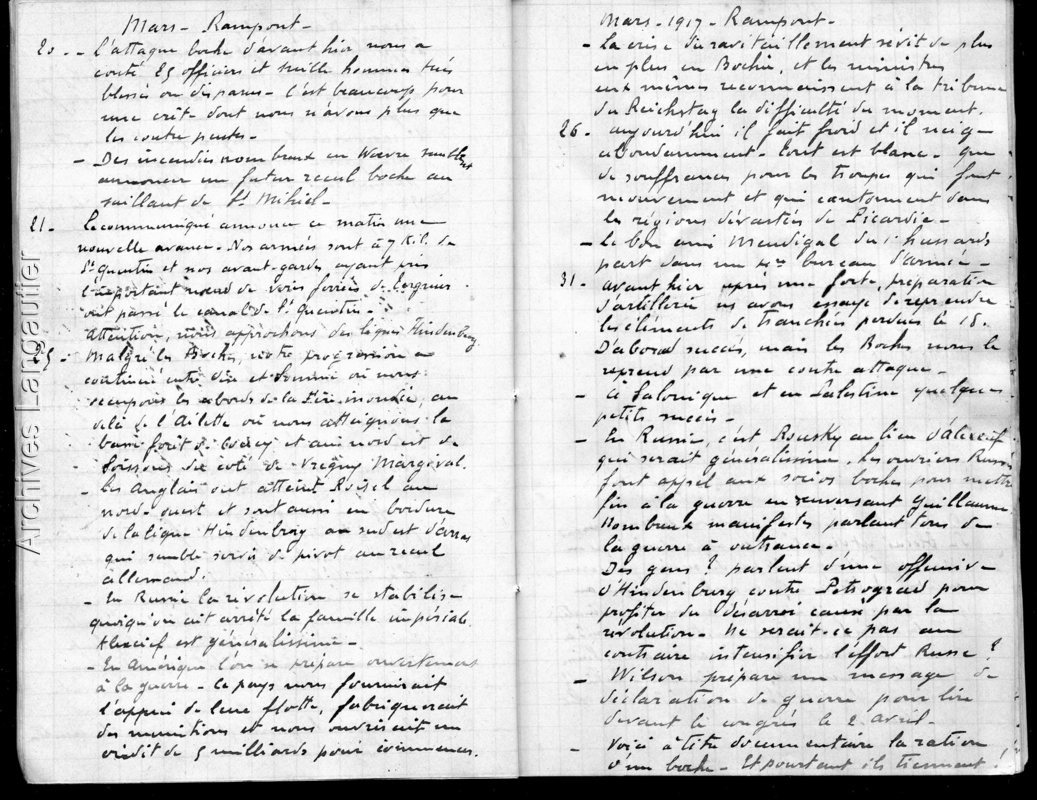 Mars - Rampont -
20 - - L'attaque boche d'avant hier nous a
couté 25 officiers et mille hommes tués
blessés ou disparus - C'est beaucoup pour
une crête dont nous n'avons plus que
les contre pentes -
- Des incendies nombreux en Woëvre semblent
annoncer un futur recul boche au
saillant de St Mihiel -
21 - Le communiqué annonce ce matin une
nouvelle avance - Nos armées sont à 7 Kil. de
St Quentin et nos avant-gardes ayant pris
l'important nœud de voies ferrées de Tergnier
ont passé le canal de St Quentin -
Attention, nous approchons des lignes Hindenburg
25 - Malgré les Boches, notre progression a
continué entre Oise et Somme où nous
occupons les abords de la Fère inondée, au
delà de l'Ailette où nous atteignons la
basse forêt de Coucy et au nord est de
Soissons du coté de Vregny Margival.
- Les Anglais ont atteint Roisel au
nord-ouest et sont aussi en bordure
de la ligne Hindenburg au sud est d'Arras
qui semble servir de pivot au recul
allemand.
- En Russie la révolution se stabilise
quoiqu'on ait arrêté la famille impériale
Alexeief est généralissime -
- En Amérique l'on se prépare ouvertement
à la guerre - Ce pays nous fournirait
l'appui de leur flotte, fabriquerait
des munitions et nous ouvrirait un
crédit de 5 milliards pour commencer.
Mars - 1917 - Rampont -
- La crise du ravitaillement sévit de plus
en plus en Bochie, et les ministres
eux mêmes reconnaissent à la tribune
du Reichstag la difficulté du moment.
26 - aujourd'hui il fait froid et il neige
abondamment - tout est blanc - que
de souffrances pour les troupes qui font
mouvement et qui cantonnent dans
les régions dévastées de Picardie -
- Le bon ami Mendigal du 1er hussards
part dans un bureau d'armée -
31 - avant hier après une forte préparation
d'artillerie ns avons essayé de reprendre
les éléments de tranchées perdues le 18.
D'abord succès, mais les Boches nous le
reprend par une contre attaque -
- à Salonique et en Palestine quelques
petits succès -
- En Russie, c'est Rousky au lieu d'Alexeief
qui serait généralissime. Les ouvriers Russes
font appel aux socios boches pour mettre
fin à la guerre en renversant Guillaume
Nombreux manifestes parlant tous de
la guerre à outrance -
Des gens ? parlent d'une offensive
d'Hindenburg contre Petrograd pour
profiter du désarroi causé par la
révolution - Ne serait-ce pas au
contraire intensifier l'effort Russe ?
- Wilson prépare un message de
déclaration de guerre pour lire
devant le congrès le 2 avril -
- Voici à titre documentaire la ration
d'un boche - Et pourtant ils tiennent !
Archives Largautier